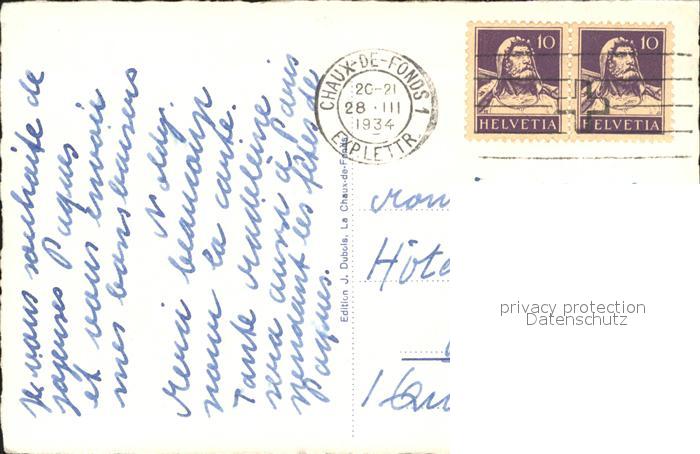 Je vous souhaite de
joyeuses Pâques
et vous envoie
mes bons baisers
Noldy.
Merci beaucoup
pour la carte.
Tante Madeleine
sera aussi à Paris
pendant les fêtes de
Pâques.
Edition J. Dubois, La Chaux-de-Fonds
CHAUX-DE-FONDS 1
20-21
28.III
1934
EXP. LETTR.
10
HELVETIA
10
HELVETIA
Hôte
privacy protection
Datenschutz